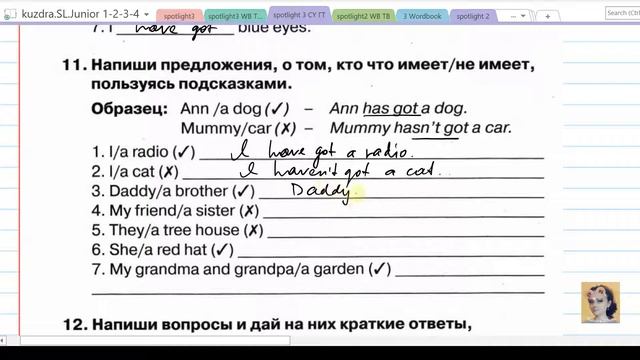 kuzdra.SL.Junior 1-2-3-4
spotlight3
spotlight3 WB T...
spotlight 3 CY ГТ
spotlight2 WB TB
3 Wordbook
spotlight 2
Search (Ct
7. I have got blue eyes.
11. Напиши предложения, о том, кто что имеет/не имеет,
пользуясь подсказками.
Образец: Ann /a dog (✓) – Ann has got a dog.
Mummy/car (✗) – Mummy hasn't got a car.
1. I/a radio (✓) I have got a radio.
2. I/a cat (✗) I haven't got a cat.
3. Daddy/a brother (✓) Daddy
4. My friend/a sister (✗)
5. They/a tree house (✗)
6. She/a red hat (✓)
7. My grandma and grandpa/a garden (✓)
12. Напиши вопросы и дай на них краткие ответы,